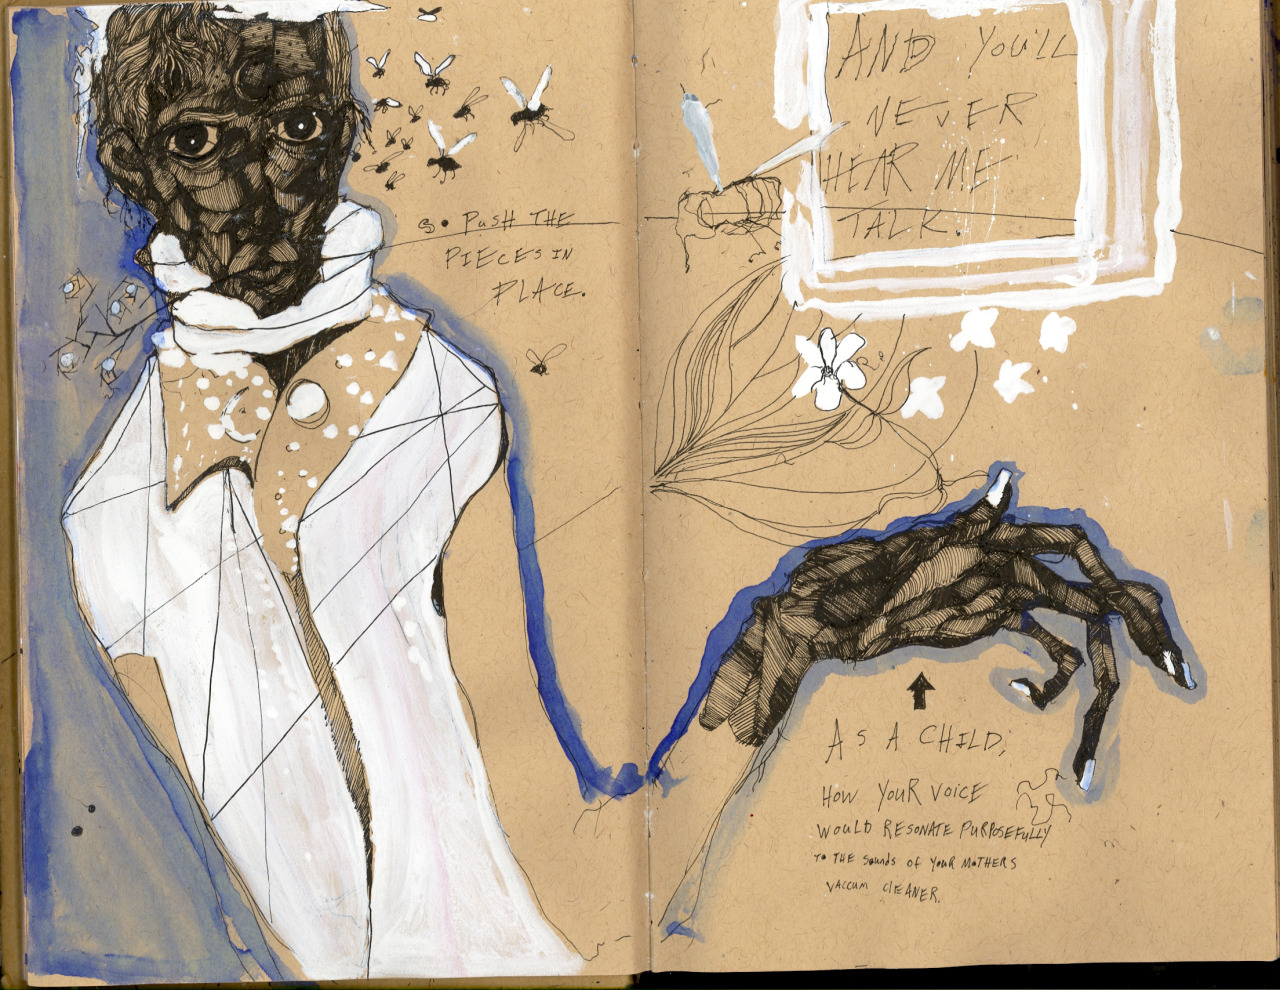 S. PUSH THE
PIECES IN
PLACE.
AND YOU'LL
NEVER
HEAR ME
TALK.
AS A CHILD,
HOW YOUR VOICE
WOULD RESONATE PURPOSEFULLY
TO THE SOUNDS OF YOUR MOTHERS
VACCUM CLEANER.